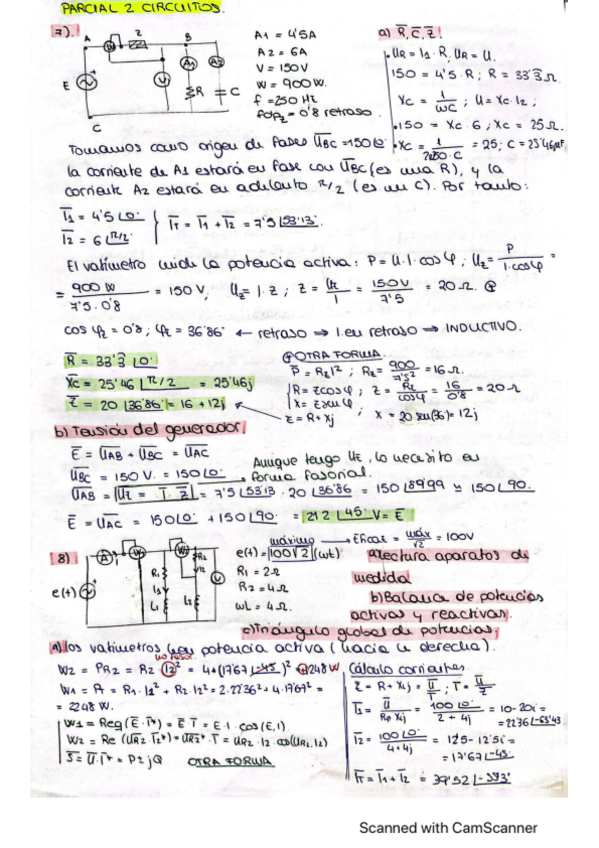 PARCIAL 2 CIRCUITOS.
7).
A 2 B
E
C
A1 A2
R C
A1 = 4'5A
A2 = 6A
V = 150V
W = 900W.
f = 250 Hz
fdp_Z = 0'8 retraso.
a) R̄, C̄, Z̄.
UR = I1 · R, UR = U.
150 = 4'5 · R ; R = 33'3 Ω.
Xc = 1/ωC ; U = Xc · I2 ;
150 = Xc · 6 ; Xc = 25 Ω.
Tomamos como origen de fases ŪBC = 150∠0
la corriente de A1 estará en fase con ŪBC (es una R), y la
corriente A2 estará en adelanto π/2 (es un C). Por tanto:
Ī1 = 4'5∠0.
Ī2 = 6∠π/2.
ĪT = Ī1 + Ī2 = 7'5∠53'13.
El vatímetro mide la potencia activa: P = U·I·cosφ ; Uz = P/I·cosφ =
= 900W/7'5·0'8 = 150V ; Uz = I·Z ; Z = Uz/I = 150V/7'5 = 20 Ω.
cosφz = 0'8 ; φz = 36'86° ← retraso ⇒ I en retraso ⇒ INDUCTIVO.
R̄ = 33'3∠0.
X̄c = 25'46∠π/2 = 25'46j
Z̄ = 20∠36'86 = 16 + 12j
OTRA FORMA.
P = Rz I² ; Rz = 900/7'5² = 16 Ω.
R = Z cosφ ; Z = Rz/cosφ = 16/0'8 = 20 Ω
X = Z senφ ; X = 20 sen(36) = 12j
Z = R + Xj
b) Tensión del generador.
Ē = ŪAB + ŪBC = ŪAC
ŪBC = 150V. = 150∠0.
Aunque tengo Uz, lo necesito en
forma fasorial.
ŪAB = Ūz = Ī · Z̄ = 7'5∠53'13 · 20∠36'86 = 150∠89'99 ≃ 150∠90.
Ē = ŪAC = 150∠0. + 150∠90. = 212∠45° V = Ē
8)
A W1 W2
e(t)
R1 I1 L1
R2 I2 L2
e(t) = 100√2 (ωt)
máximo → Eficaz = máx/√2 = 100V
R1 = 2Ω
R2 = 4Ω
ωL = 4Ω.
a) Lectura aparatos de
medida
b) Balance de potencias
activas y reactivas.
c) Triángulo global de potencias.
a) los vatímetros leen potencia activa (hacia la derecha).
W2 = PR2 = R2 · I2² = 4·(17'67∠-45)² = 1248W
W1 = Pt = R1·I1² + R2·I2² = 2·22'36² + 4·17'67² =
= 2248W.
W1 = Reg (Ē·Ī*) = Ē·Ī = E·I·cos(E,I)
W2 = Re (ŪR2·Ī2*) = ŪR2·Ī = UR2·I2 cos(UR2,I2)
S̄ = Ū·Ī* = P ± jQ OTRA FORMA
Cálculo corrientes.
Z = R + Xj = Ū/Ī ; Ī = Ū/Z̄
Ī1 = 100∠0./2+4j = 10-20i = 22'36∠-63'43
Ī2 = 100∠0./4+4j = 12'5-12'5i = 17'67∠-45.
ĪT = Ī1 + Ī2 = 39'52∠-55'3°
Scanned with CamScanner